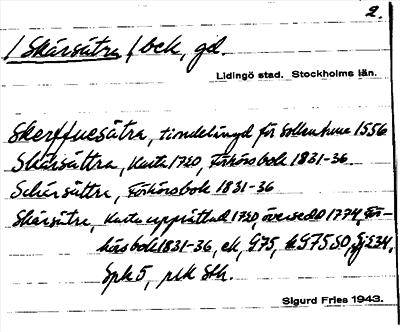 2.
/ Skärsätra / bck, gd.
Lidingö stad. Stockholms län.
Skerffuesätra, tiondelängd för Sollentuna 1556
Skärsättra, Karta 1720, Förhörsbok 1831-36.
Schärsättre, Förhörsbok 1831-36
Skärsätre, Karta upprättad 1720, översedd 1774, För-
hörsbok 1831-36, ek, G75,
Spk 5, rtk Sth.
Sigurd Fries 1943.